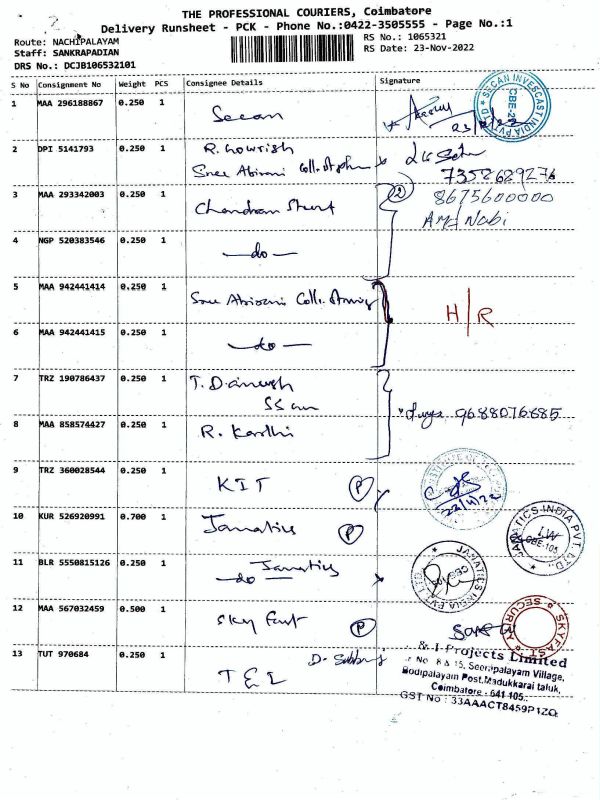 THE PROFESSIONAL COURIERS, Coimbatore
Delivery Runsheet - PCK - Phone No.:0422-3505555 - Page No.:1
Route: NACHIPALAYAM
Staff: SANKRAPADIAN
DRS No.: DCJB106532101
RS No.: 1065321
RS Date: 23-Nov-2022
S No Consignment No Weight PCS Consignee Details Signature
1 MAA 296188867 0.250 1 Secan
SECAN INVESCAST INDIA PVT LTD
2 DPI 5141793 0.250 1 R. Gowrish
Sree Abirami Coll.
7358629276
3 MAA 293342003 0.250 1 Chandran Stunt
2 8675600000
4 NGP 520383546 0.250 1 -do-
5 MAA 942441414 0.250 1 Sree Abirami Coll.
H/R
6 MAA 942441415 0.250 1 -do-
7 TRZ 190786437 0.250 1 T. Dainesh
9688076685
8 MAA 858574427 0.250 1 R. Karthi
9 TRZ 360028544 0.250 1 KIT P
10 KUR 526920991 0.700 1 Janatics P
JANATICS INDIA PVT. LTD.
CBE-105
11 BLR 5550815126 0.250 1 -do- Janatics
JANATICS INDIA PVT LTD
12 MAA 567032459 0.500 1 Sky Fast P
SKYFAST SECURITY
13 TUT 970684 0.250 1 T E L
& J Projects Limited
No 8 & 15, Seeripalayam Village,
Bodipalayam Post, Madukkarai taluk,
Coimbatore - 641 105.
GST No : 33AAACT8459P1ZQ